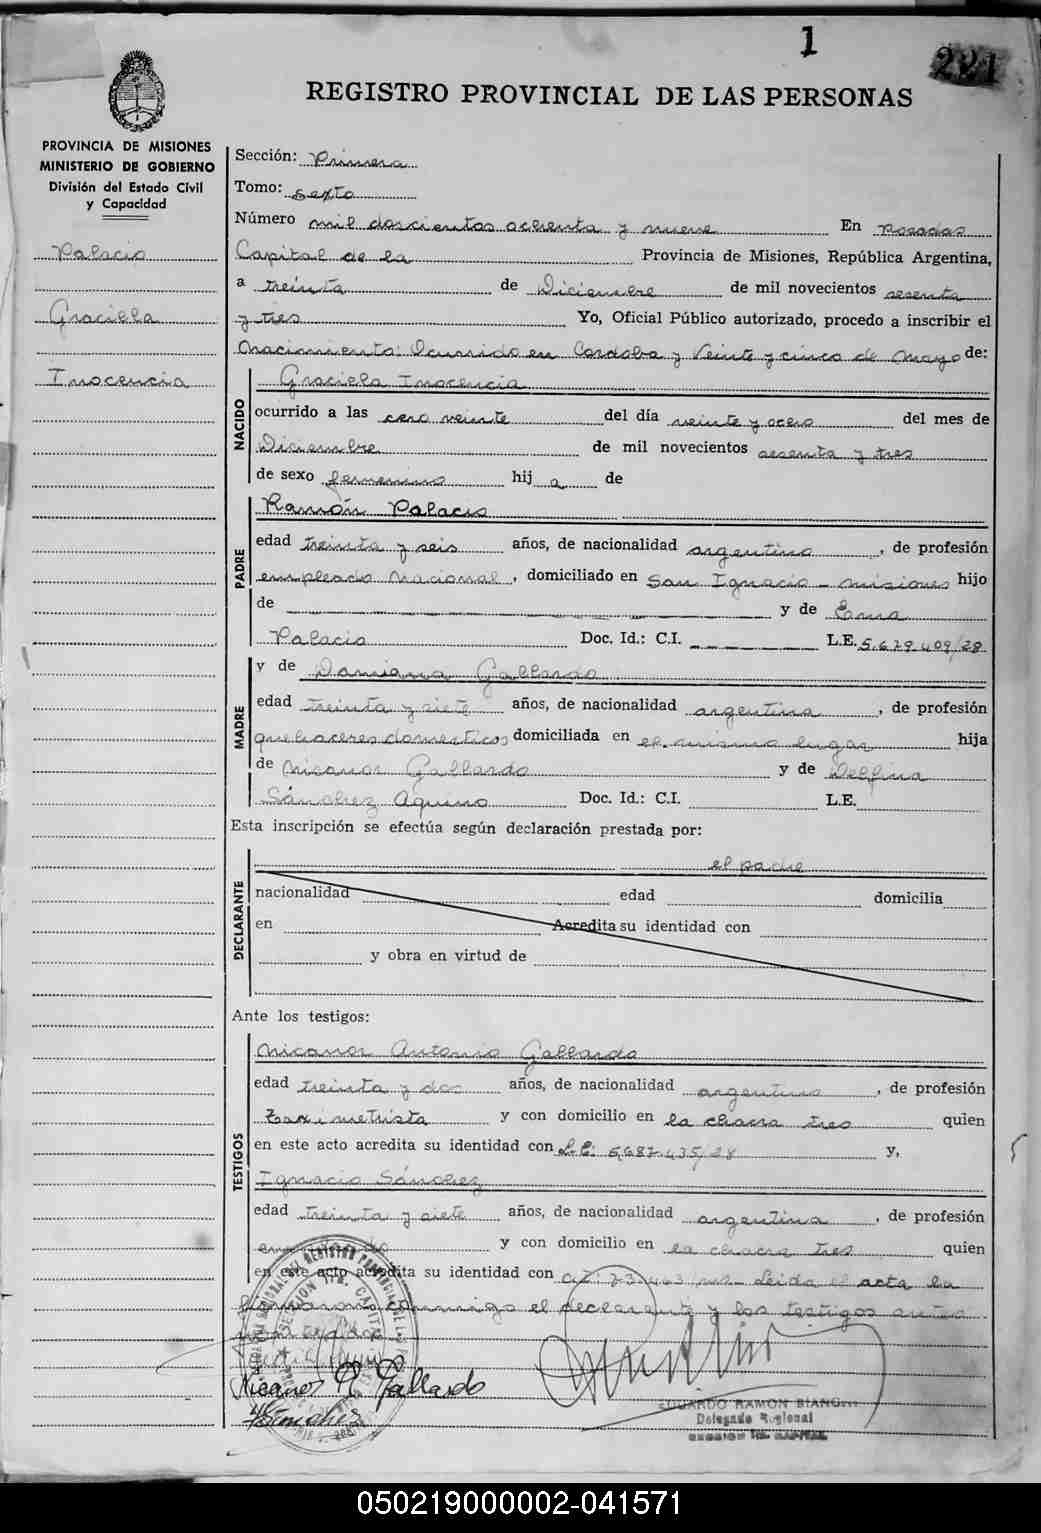 1
221
REGISTRO PROVINCIAL DE LAS PERSONAS
PROVINCIA DE MISIONES
MINISTERIO DE GOBIERNO
División del Estado Civil
y Capacidad
Palacio
Graciela
Inocencia
Sección: Primera
Tomo: Sexto
Número mil doscientos ochenta y nueve En Posadas
Capital de la Provincia de Misiones, República Argentina,
a treinta de Diciembre de mil novecientos sesenta
y tres Yo, Oficial Público autorizado, procedo a inscribir el
Nacimiento: Ocurrido en Cordoba y Veinte y cinco de Mayo de:
NACIDO
Graciela Inocencia
ocurrido a las cero veinte del día veinte y ocho del mes de
Diciembre de mil novecientos sesenta y tres
de sexo femenino hij a de
PADRE
Ramón Palacio
edad treinta y seis años, de nacionalidad argentino, de profesión
empleado Nacional, domiciliado en San Ignacio - Misiones hijo
de y de Ema
Palacio Doc. Id.: C.I. L.E. 5.679.409/28
MADRE
y de Damiana Gallardo
edad treinta y siete años, de nacionalidad argentina, de profesión
quehaceres domesticos domiciliada en el mismo lugar hija
de Nicanor Gallardo y de Delfina
Sánchez Aquino Doc. Id.: C.I. L.E.
Esta inscripción se efectúa según declaración prestada por:
DECLARANTE
el padre
nacionalidad edad domicilia
en Acredita su identidad con
y obra en virtud de
Ante los testigos:
TESTIGOS
Nicanor Antonio Gallardo
edad treinta y dos años, de nacionalidad argentino, de profesión
Taximetrista y con domicilio en la chacra tres quien
en este acto acredita su identidad con L.E: 5,687.435/28 y,
Ignacio Sánchez
edad treinta y siete años, de nacionalidad argentina, de profesión
y con domicilio en la chacra tres quien
en este acto acredita su identidad con Leida el acta la
firmaron conmigo el declarante y los testigos antes
Nicanor A. Gallardo
Sanchez
EDUARDO RAMON
Delegado Regional
050219000002-041571